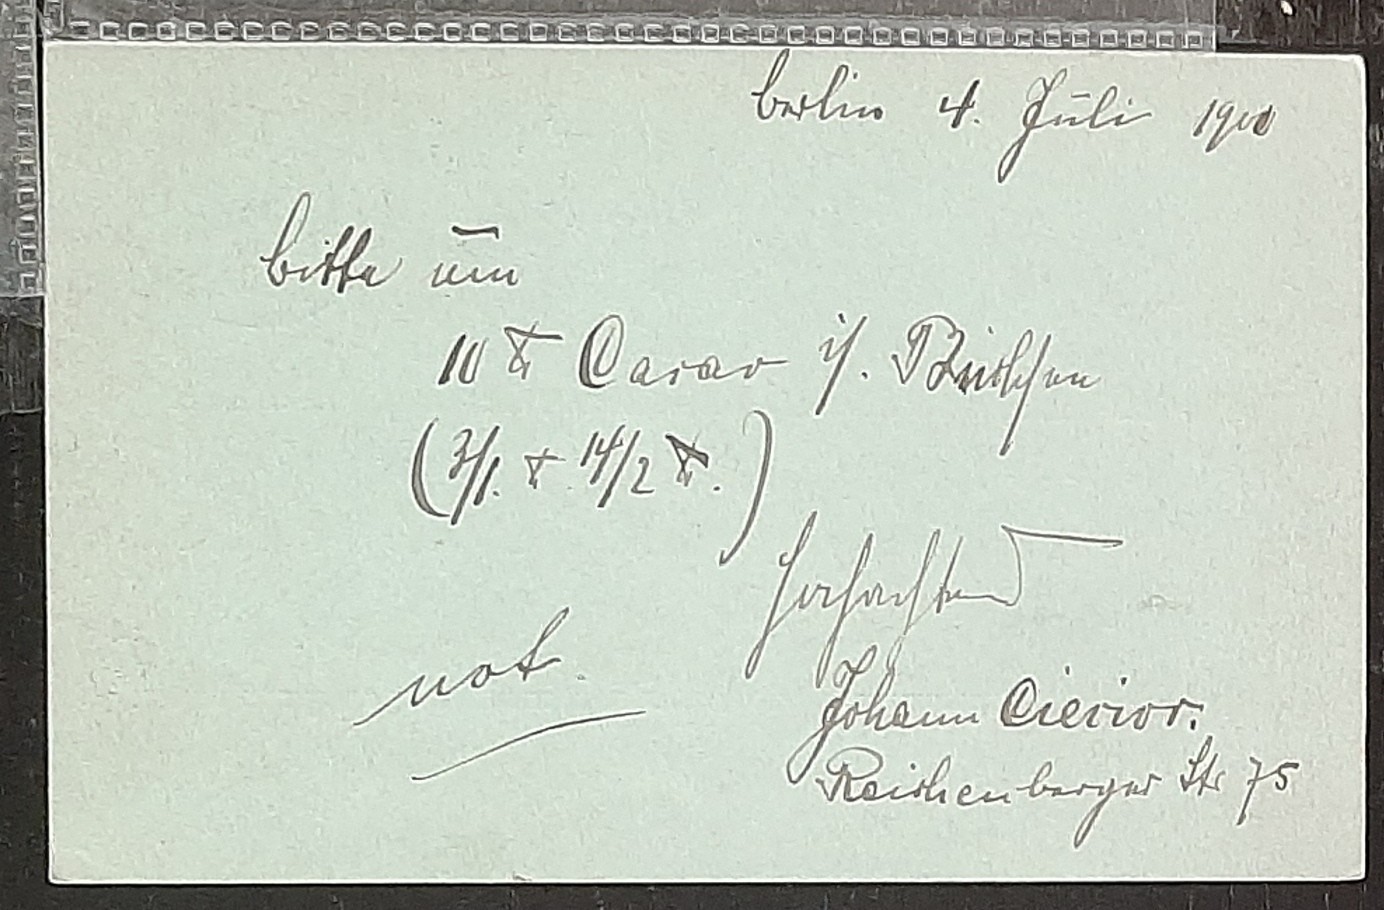 Berlin 4. Juli 1900
bitte um
10 ℔ Cacao i/. Büchsen
(3/1. + 14/2 ℔.)
Hochachtend
Johann
Reichenberger Str 75
not.